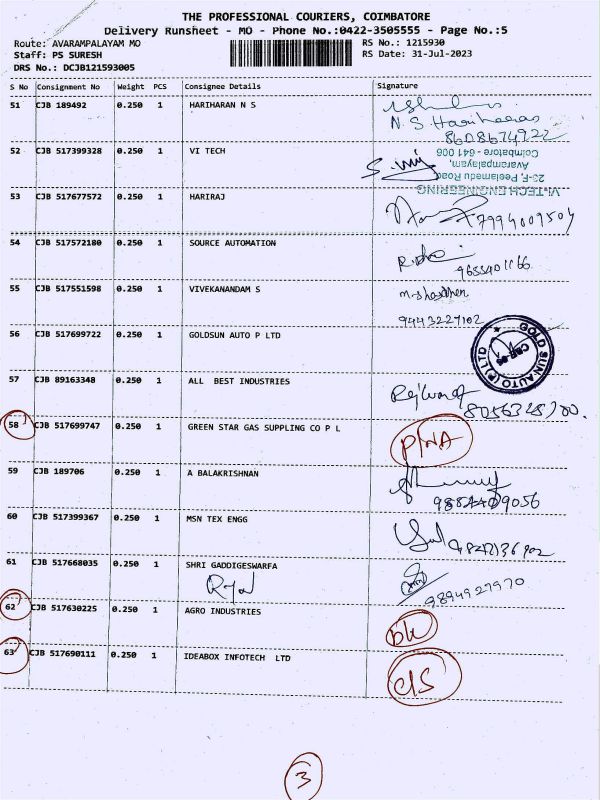 THE PROFESSIONAL COURIERS, COIMBATORE
Delivery Runsheet - MO - Phone No.:0422-3505555 - Page No.:5
Route: AVARAMPALAYAM MO RS No.: 1215930
Staff: PS SURESH RS Date: 31-Jul-2023
DRS No.: DCJB121593005
S No Consignment No Weight PCS Consignee Details Signature
51 CJB 189492 0.250 1 HARIHARAN N S
N. S. Hariharan
8608674922
52 CJB 517399328 0.250 1 VI TECH
VI-TECH ENGINEERING
23-F, Peelamedu Road,
Avarampalayam,
Coimbatore - 641 006
53 CJB 517677572 0.250 1 HARIRAJ
7994009504
54 CJB 517572180 0.250 1 SOURCE AUTOMATION
55 CJB 517551598 0.250 1 VIVEKANANDAM S
9443227102
56 CJB 517699722 0.250 1 GOLDSUN AUTO P LTD
GOLD SUN AUTO (P) LTD
CBE-06
57 CJB 89163348 0.250 1 ALL BEST INDUSTRIES
58 CJB 517699747 0.250 1 GREEN STAR GAS SUPPLING CO P L
P/NA
59 CJB 189706 0.250 1 A BALAKRISHNAN
60 CJB 517399367 0.250 1 MSN TEX ENGG
61 CJB 517668035 0.250 1 SHRI GADDIGESWARFA
9894927970
62 CJB 517630225 0.250 1 AGRO INDUSTRIES
63 CJB 517690111 0.250 1 IDEABOX INFOTECH LTD
c/s
3